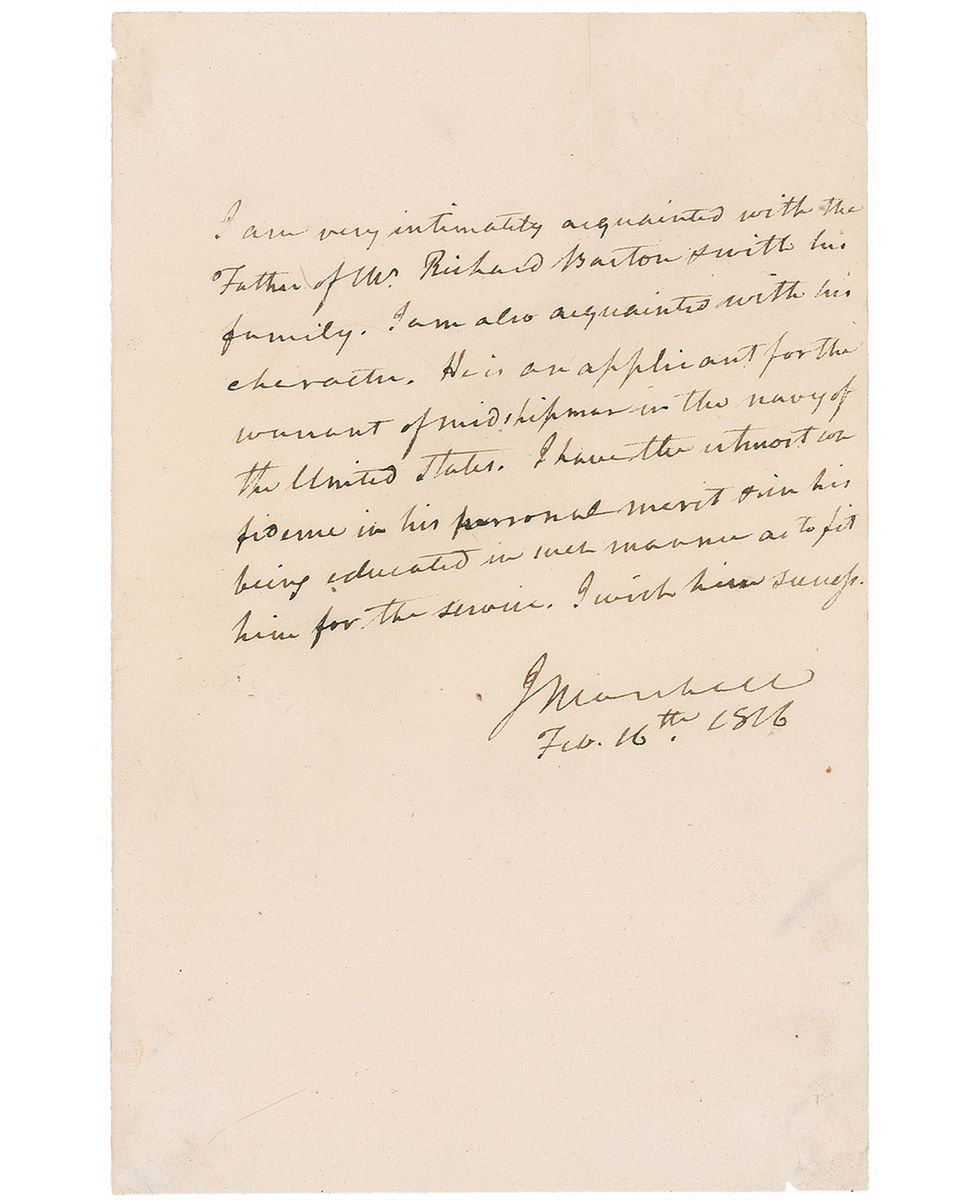 I am very intimately acquainted with the
Father of Mr. Richard Barton & with his
family. I am also acquainted with his
character. He is an applicant for the
warrant of midshipman in the navy of
the United States. I have the utmost con
fidence in his personal merit & in his
being educated in such manner as to fit
him for the service. I wish him success.
J Marshall
Feb. 16th. 1816